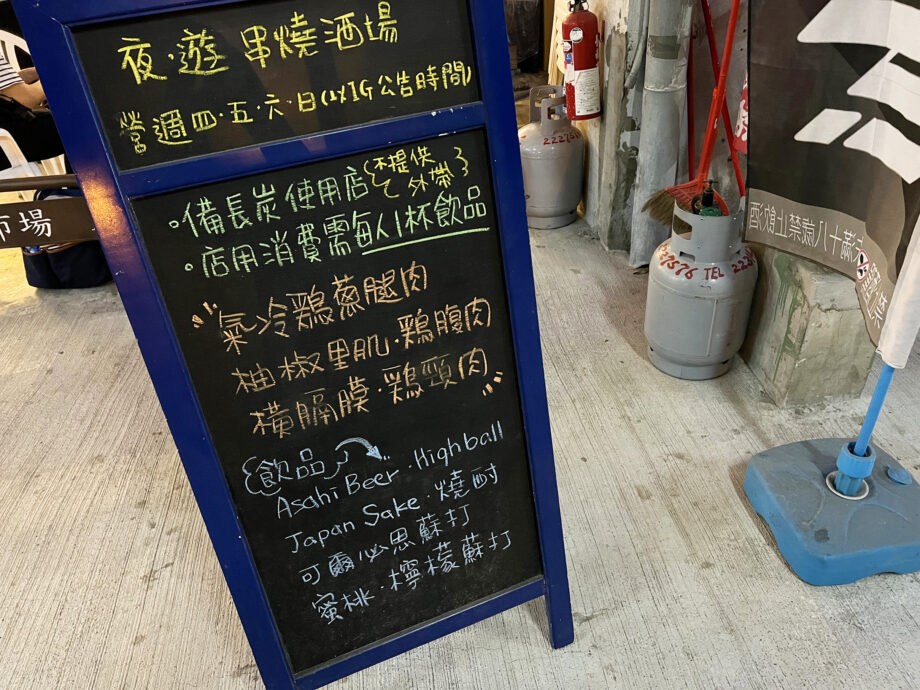 夜·遊 串燒酒場
營週四·五·六·日(以IG公告時間)
·備長炭使用店{不提供外帶}
·店用消費需每人1杯飲品
"氣冷鶏蔥腿肉
柚椒里肌·鶏腹肉
橫膈膜·鶏頸肉"
飲品
Asahi Beer·Highball
Japan Sake·燒酎
可爾必思蘇打
蜜桃·檸檬蘇打
市場
22276
27576 TEL 2223
滿十八歲禁止飲酒